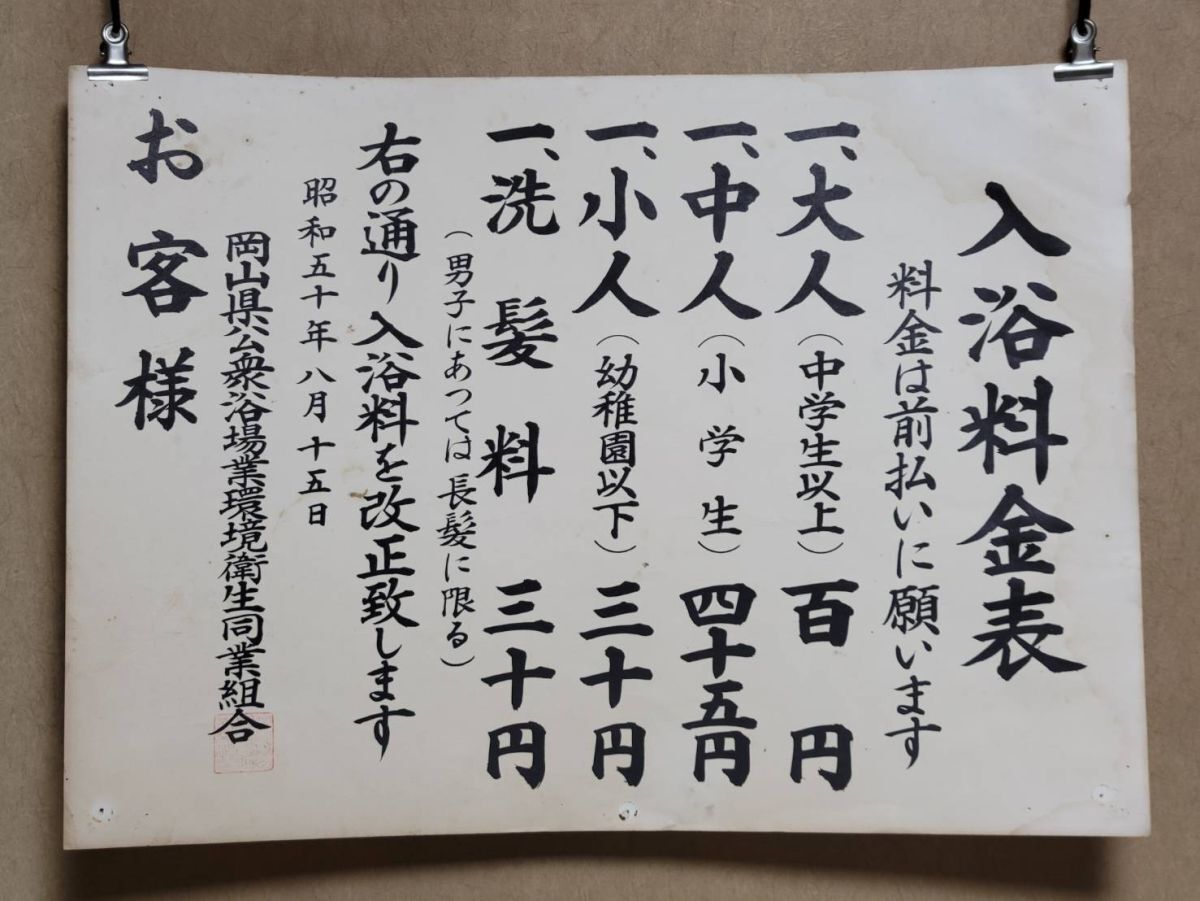 入浴料金表
料金は前払いに願います
一、大人(中学生以上)百円
一、中人(小学生)四十五円
一、小人(幼稚園以下)三十円
一、洗髪料三十円
(男子にあつては長髪に限る)
右の通り入浴料を改正致します
昭和五十年八月十五日
岡山県公衆浴場業環境衛生同業組合
お客様